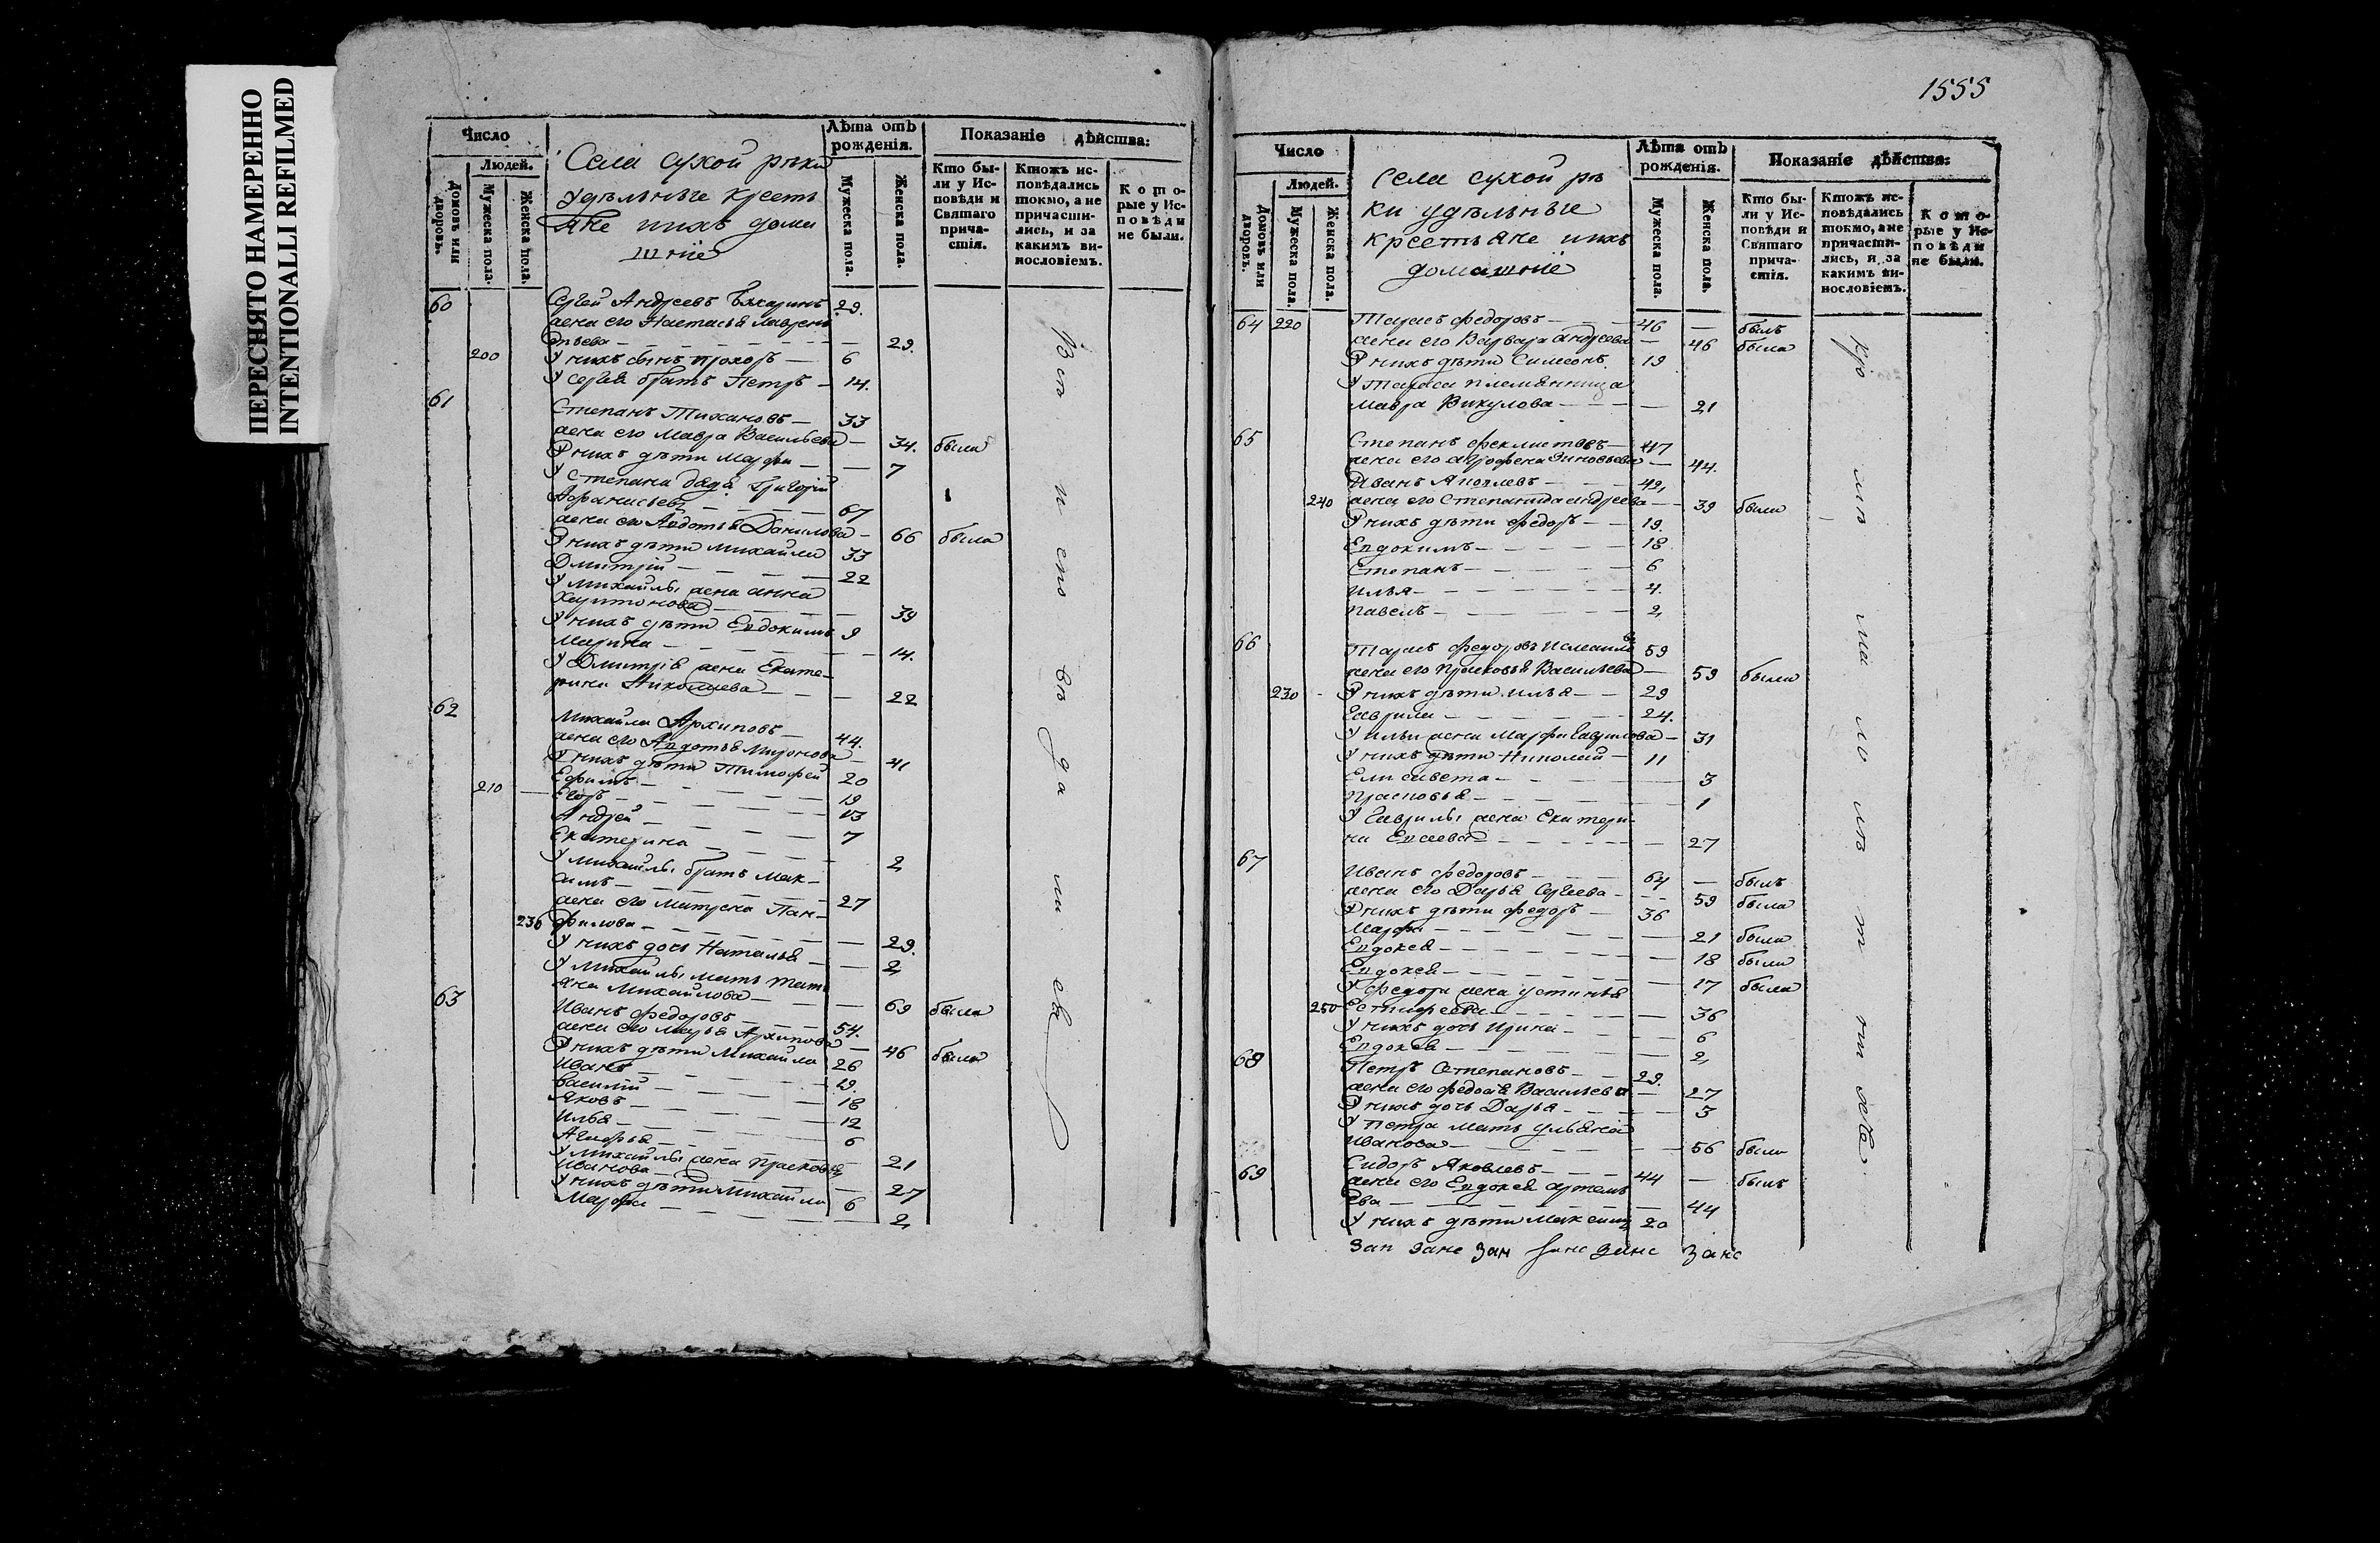 ПЕРЕСНЯТО НАМЕРЕННО
INTENTIONALLI REFILMED
Число
Людей.
Домовъ или дворовъ.
Мужеска пола.
Женска пола.
Села сухой рѣки
удѣльныѣ крестъ
яне ихъ дома
шніе
Лѣта отъ рожденія.
Мужеска пола.
Женска пола.
Показаніе дѣйства:
Кто бы-
ли у Ис-
повѣди и
Святаго
прича-
стія.
Ктожъ ис-
повѣдались
токмо, а не
причасти-
лись, и за
какимъ ви-
нословіемъ.
Кото-
рые у Ис-
повѣди
не были.
60 Сергей Андреевъ 29.
жена его Настасья Лаврен
тьева 29.
200 У нихъ сынъ Прохоръ 6
У Сергея братъ Петръ 14.
61
Степанъ Тихановъ 33
жена его Мавра Васильева 34. была
У нихъ дѣти Марфа 7
У Степана дядя Григорій
Афанасьевъ 67
жена его Авдотья Данилова 66 была
У нихъ дѣти Михайла 33
Дмитрій 22
У Михайлы жена Анна
Харитонова 39
У нихъ дѣти Евдокимъ 9
Марина 14.
У Дмитрія жена Екате-
рина Николаева 22
62
Михайла Архиповъ 44.
жена его Авдотья Миронова 41
У нихъ дѣти Тимофей 20
Ефимъ 19
210 Егоръ 13
Андрей 7
Екатерина 2
У Михайлы братъ Мак-
симъ 27
жена его Матрена Пан-
236 филова 29.
У нихъ дочь Наталья 2
У Михайлы мать Тать
яна Михайлова 69 была
63
Иванъ Федоровъ 54.
жена его Марья Архипова 46 была
У нихъ дѣти Михайла 26
Иванъ 19.
Василій 18
Яковъ 12
Илья 6
Агафья 21
У Михайлы жена Прасковья
Иванова 27
У нихъ дѣти Михайла 6
Марфа 2
1555
Число
Людей.
Домовъ или дворовъ.
Мужеска пола.
Женска пола.
Села сухой рѣ
ки удѣльныѣ
крестьяне ихъ
домашніе
Лѣта отъ рожденія.
Мужеска пола.
Женска пола.
Показаніе дѣйства:
Кто бы-
ли у Ис-
повѣди и
Святаго
прича-
стія.
Ктожъ ис-
повѣдались
токмо, а не
причасти-
лись, и за
какимъ ви-
нословіемъ.
Кото-
рые у Ис-
повѣди
не были.
64 220 Тарасъ Федоровъ 46 — былъ
жена его Варвара Андреева 46 была
У нихъ дѣти Симеонъ 19
У Тараса племянница
Мавра Викулова 21
65 Степанъ Феклистовъ 47
жена его Агрофена Зиновьева 44.
Иванъ 42,
240 жена его Степанида Андреева 39 была
У нихъ дѣти Федоръ 19.
Евдокимъ 18
Степанъ 6
Илья 4.
Павелъ 2,
66
Тарасъ Федоровъ 59
жена его Прасковья Васильева 59 была
230 У нихъ дѣти Илья 29
Гаврила 24.
У Ильи жена Марфа Гаврилова 31
У нихъ дѣти Николай 11
Елисавета 3
Прасковья 1
У Гаврилы жена Екатери-
на Евсеева 27
67
Иванъ Федоровъ 64 — былъ
жена его Дарья Сергеева 59 была
У нихъ дѣти Федоръ 36
Марфа 21 была
Евдокея 18 была
Евдокея 17 была
У Федора жена Устинья
250 Естифеева 36
У нихъ дочь Ирина 6
Евдокея 2,
68
Петръ Степановъ 29.
жена его Федосья Васильева 27
У нихъ дочь Дарья 3
У Петра мать Ульяна
Иванова 56 была
69 Сидоръ Яковлевъ 44 — былъ
жена его Евдокея Артемь
ева 44
У нихъ дѣти Максимъ 20